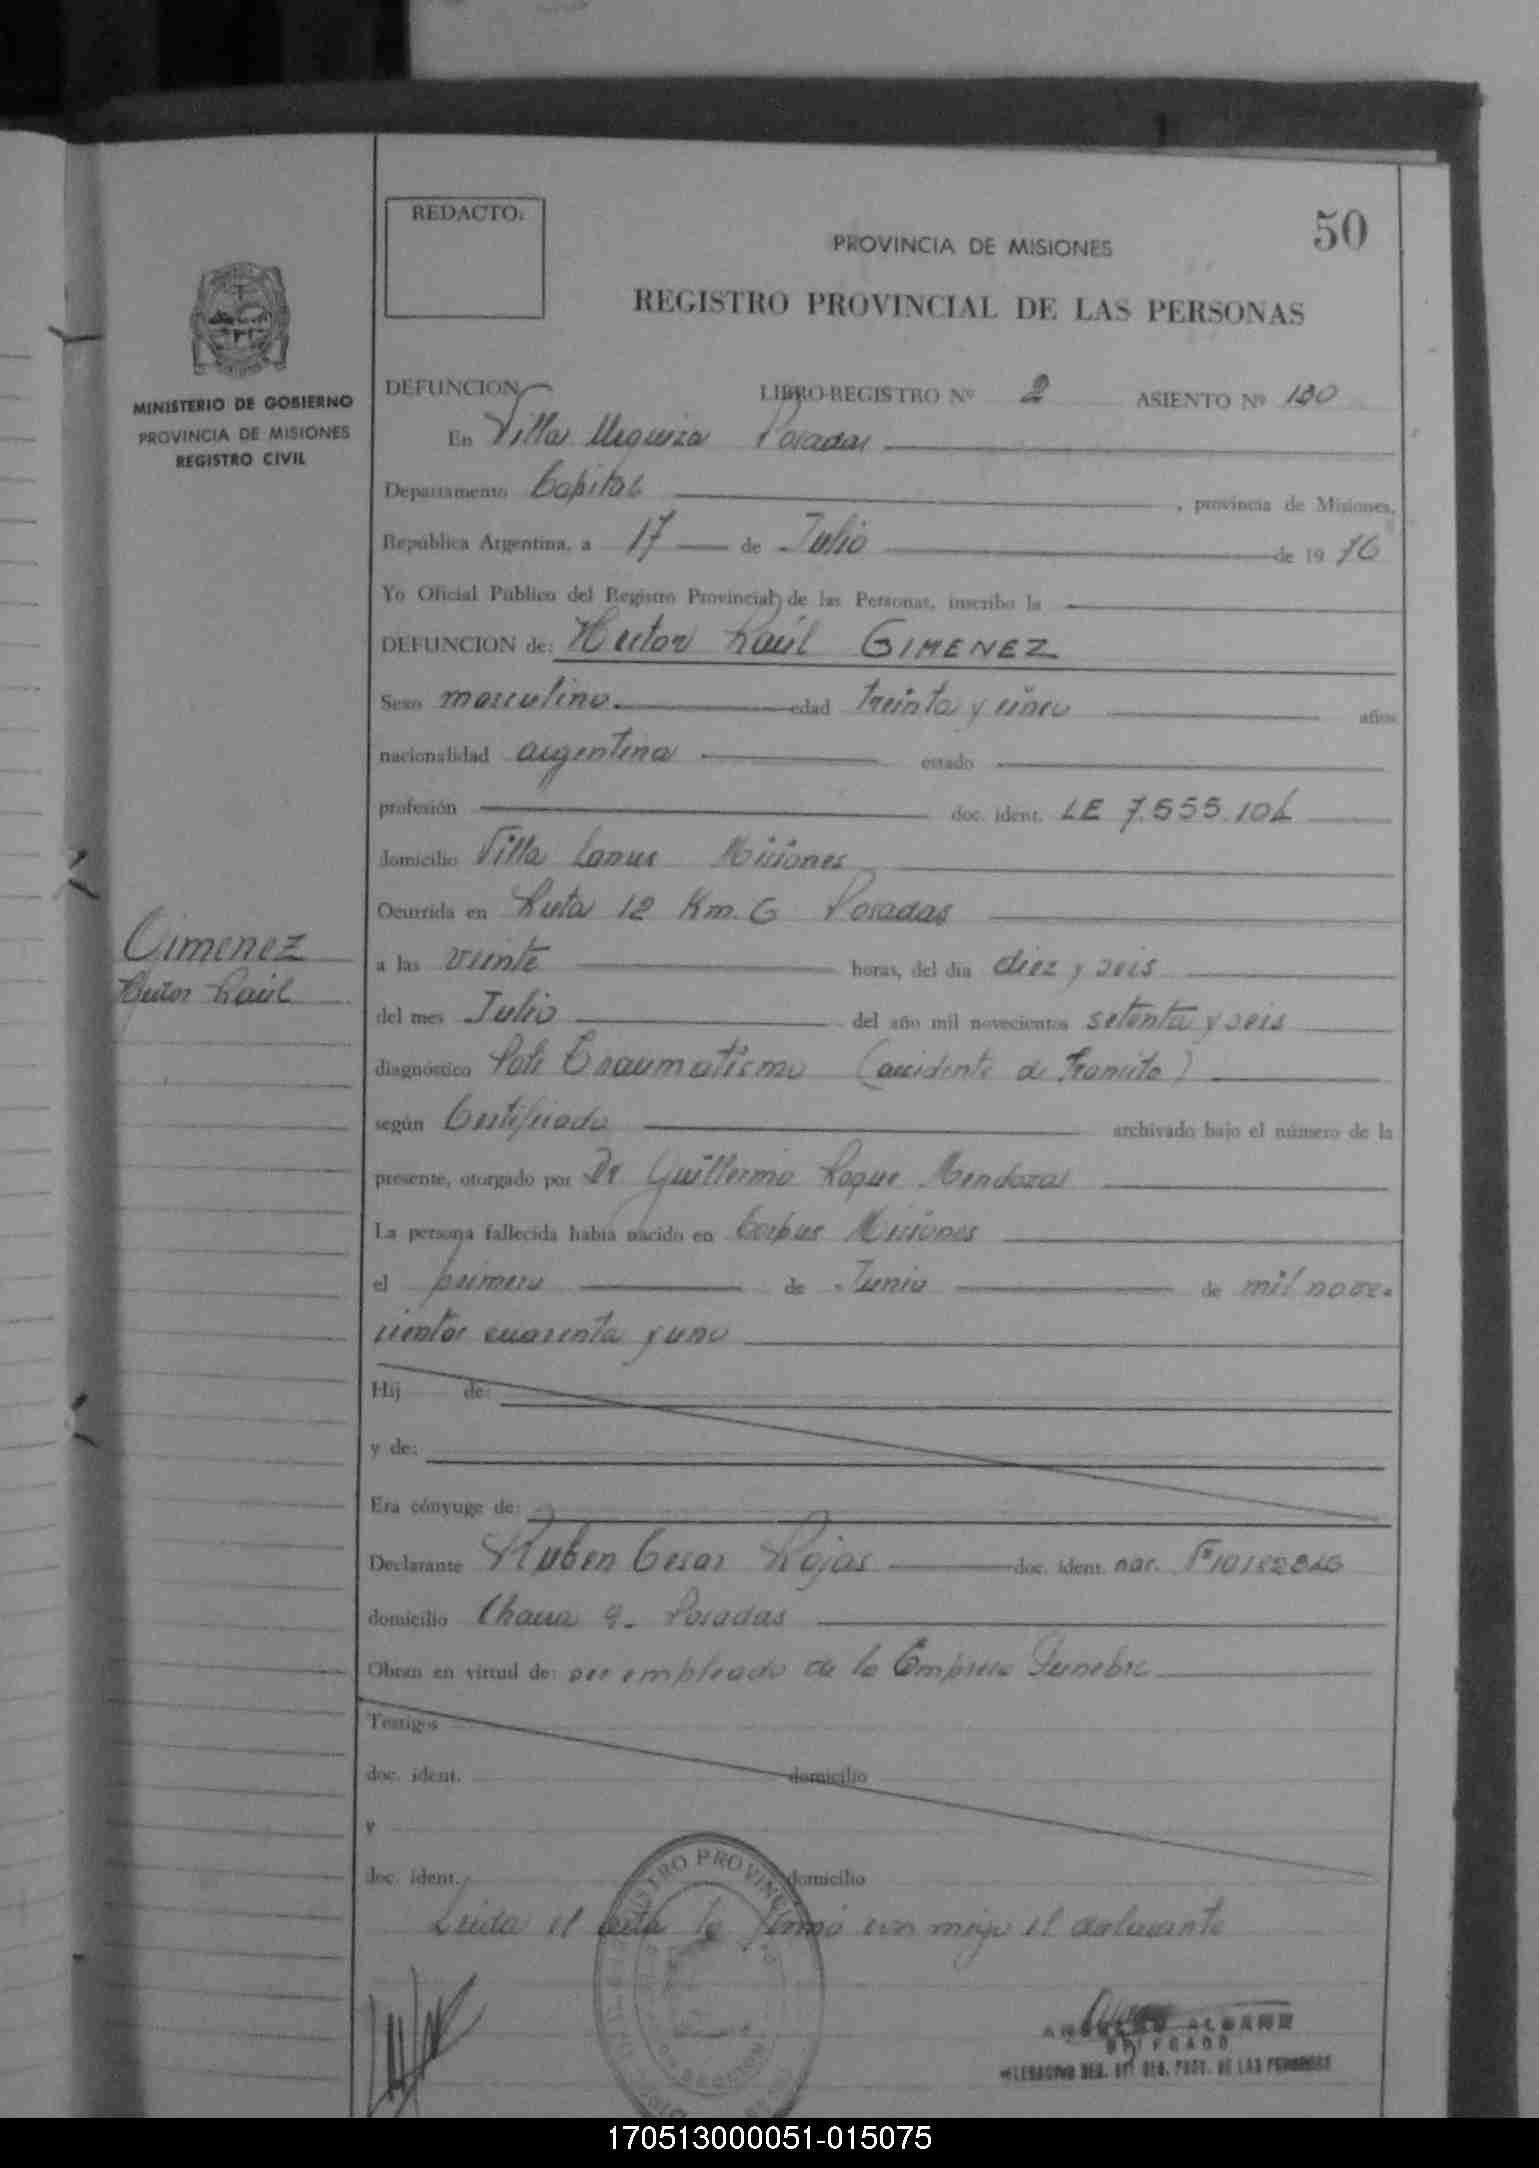 REDACTO:
50
PROVINCIA DE MISIONES
REGISTRO PROVINCIAL DE LAS PERSONAS
MINISTERIO DE GOBIERNO
PROVINCIA DE MISIONES
REGISTRO CIVIL
DEFUNCION LIBRO-REGISTRO Nº 2 ASIENTO Nº 130
En Villa Urquiza Posadas
Departamento Capital , provincia de Misiones,
República Argentina, a 17 de Julio de 1976
Yo Oficial Público del Registro Provincial de las Personas, inscribo la
DEFUNCION de: Hector Raúl GIMENEZ
Sexo masculino. edad treinta y cinco años
nacionalidad argentina estado
profesión doc. ident. LE 7.555.104
domicilio Villa Lanus Misiones
Ocurrida en Ruta 12 Km. 6 Posadas
Gimenez
Hector Raúl
a las veinte horas, del día diez y seis
del mes Julio del año mil novecientos setenta y seis
diagnóstico Poli Traumatismo (accidente de transito)
según Certificado archivado bajo el número de la
presente, otorgado por Dr Guillermo Roque Mendoza
La persona fallecida había nacido en Corpus Misiones
el primero de Junio de mil nove-
cientos cuarenta y uno
Hij de:
y de:
Era cónyuge de:
Declarante Ruben Cesar Rojas doc. ident. nac.
domicilio Posadas
Obran en virtud de: ser empleado de la Empresa Funebre
Testigos
doc. ident. domicilio
y
doc. ident. domicilio
Leida el acta la firmó con migo el declarante
DELEGADO
REG. PROV. DE LAS PERSONAS
170513000051-015075